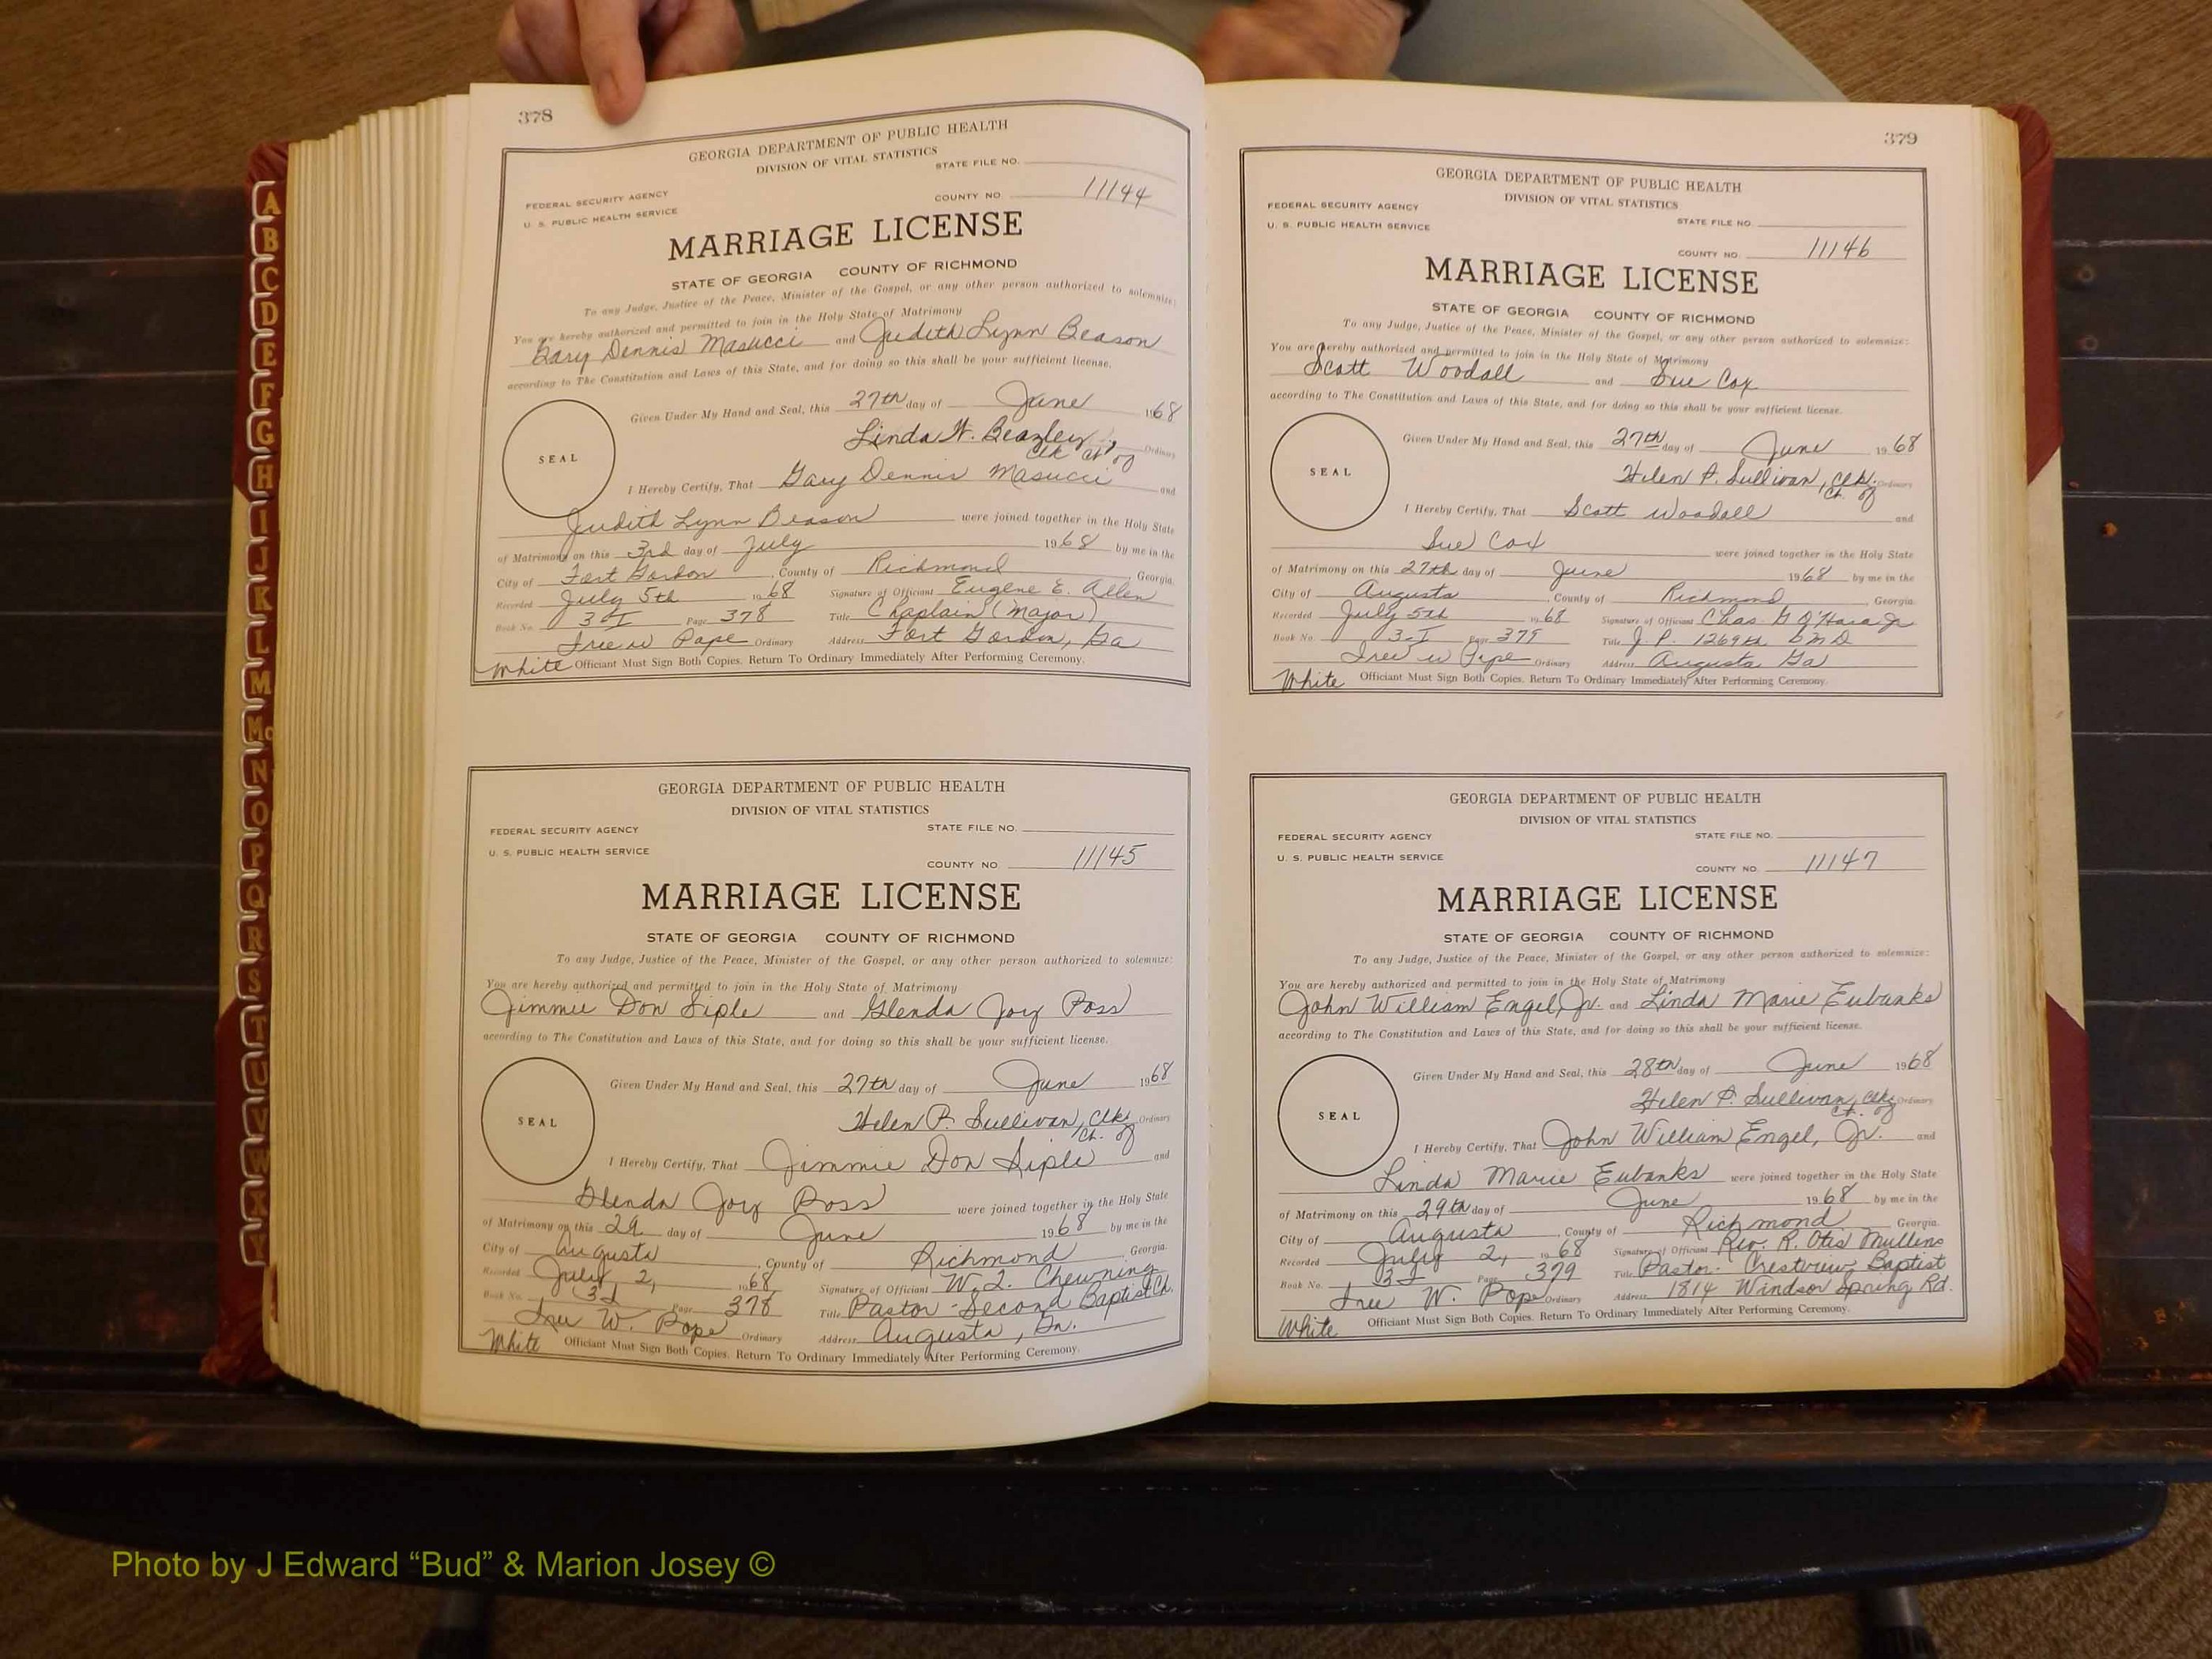 378
GEORGIA DEPARTMENT OF PUBLIC HEALTH
DIVISION OF VITAL STATISTICS
STATE FILE NO.
FEDERAL SECURITY AGENCY
COUNTY NO 11144
U. S. PUBLIC HEALTH SERVICE
MARRIAGE LICENSE
STATE OF GEORGIA COUNTY OF RICHMOND
To any Judge, Justice of the Peace, Minister of the Gospel, or any other person authorized to solemnize:
You are hereby authorized and permitted to join in the Holy State of Matrimony
Gary Dennis Masucci and Judith Lynn Beason
according to The Constitution and Laws of this State, and for doing so this shall be your sufficient license.
Given Under My Hand and Seal, this 27th day of June 1968
Linda W. Beazley, Ordinary
Clk Ct of
SEAL
I Hereby Certify, That Gary Dennis Masucci and
Judith Lynn Beason were joined together in the Holy State
of Matrimony on this 3rd day of July 1968 by me in the
City of Fort Gordon, County of Richmond, Georgia.
Recorded July 5th 1968 Signature of Officiant Eugene E. Allen
Book No. 3-I Page 378 Title Chaplain (Major)
Iree W Pope Ordinary Address Fort Gordon, Ga
White Officiant Must Sign Both Copies. Return To Ordinary Immediately After Performing Ceremony.
GEORGIA DEPARTMENT OF PUBLIC HEALTH
DIVISION OF VITAL STATISTICS
FEDERAL SECURITY AGENCY STATE FILE NO.
U. S. PUBLIC HEALTH SERVICE
COUNTY NO 11145
MARRIAGE LICENSE
STATE OF GEORGIA COUNTY OF RICHMOND
To any Judge, Justice of the Peace, Minister of the Gospel, or any other person authorized to solemnize:
You are hereby authorized and permitted to join in the Holy State of Matrimony
Jimmie Don Siple and Glenda Joy Poss
according to The Constitution and Laws of this State, and for doing so this shall be your sufficient license.
Given Under My Hand and Seal, this 27th day of June 1968
Helen P. Sullivan, Clk. Ordinary
Ct. of
SEAL
I Hereby Certify, That Jimmie Don Siple and
Glenda Joy Poss were joined together in the Holy State
of Matrimony on this 29 day of June 1968 by me in the
City of Augusta, County of Richmond, Georgia.
Recorded July 2, 1968 Signature of Officiant W. L. Chewning
Book No. 3I Page 378 Title Pastor - Second Baptist Ch.
Iree W. Pope Ordinary Address Augusta, Ga.
White Officiant Must Sign Both Copies. Return To Ordinary Immediately After Performing Ceremony.
379
GEORGIA DEPARTMENT OF PUBLIC HEALTH
DIVISION OF VITAL STATISTICS
FEDERAL SECURITY AGENCY
STATE FILE NO.
U. S. PUBLIC HEALTH SERVICE
COUNTY NO. 11146
MARRIAGE LICENSE
STATE OF GEORGIA COUNTY OF RICHMOND
To any Judge, Justice of the Peace, Minister of the Gospel, or any other person authorized to solemnize:
You are hereby authorized and permitted to join in the Holy State of Matrimony
Scott Woodall and Sue Cox
according to The Constitution and Laws of this State, and for doing so this shall be your sufficient license.
Given Under My Hand and Seal, this 27th day of June 1968
Helen P. Sullivan, Clk. Ordinary
Ct. of
SEAL
I Hereby Certify, That Scott Woodall and
Sue Cox were joined together in the Holy State
of Matrimony on this 27th day of June 1968 by me in the
City of Augusta, County of Richmond, Georgia.
Recorded July 5th 1968 Signature of Officiant Chas. G O'Hara Jr
Book No 3-I Page 379 Title J. P. 1269th G M D
Iree W Pope Ordinary Address Augusta Ga
White Officiant Must Sign Both Copies. Return To Ordinary Immediately After Performing Ceremony.
GEORGIA DEPARTMENT OF PUBLIC HEALTH
DIVISION OF VITAL STATISTICS
FEDERAL SECURITY AGENCY STATE FILE NO.
U. S. PUBLIC HEALTH SERVICE
COUNTY NO. 11147
MARRIAGE LICENSE
STATE OF GEORGIA COUNTY OF RICHMOND
To any Judge, Justice of the Peace, Minister of the Gospel, or any other person authorized to solemnize:
You are hereby authorized and permitted to join in the Holy State of Matrimony
John William Engel, Jr. and Linda Marie Eubanks
according to The Constitution and Laws of this State, and for doing so this shall be your sufficient license.
Given Under My Hand and Seal, this 28th day of June 1968
Helen P. Sullivan, Clk. Ordinary
Ct. of
SEAL
I Hereby Certify, That John William Engel, Jr. and
Linda Marie Eubanks were joined together in the Holy State
of Matrimony on this 29th day of June 1968 by me in the
City of Augusta, County of Richmond Georgia.
Recorded July 2, 1968 Signature of Officiant Rev. R. Otis Mullins
Book No. 3I Page 379 Title Pastor - Crestview Baptist
Iree W. Pope Ordinary Address 1814 Windsor Spring Rd.
White Officiant Must Sign Both Copies. Return To Ordinary Immediately After Performing Ceremony.
A
B
C
D
E
F
G
H
I
J
K
L
M
Mc
N
O
P
Q
R
S
T
U
V
W
X
Y
Photo by J Edward “Bud” & Marion Josey ©